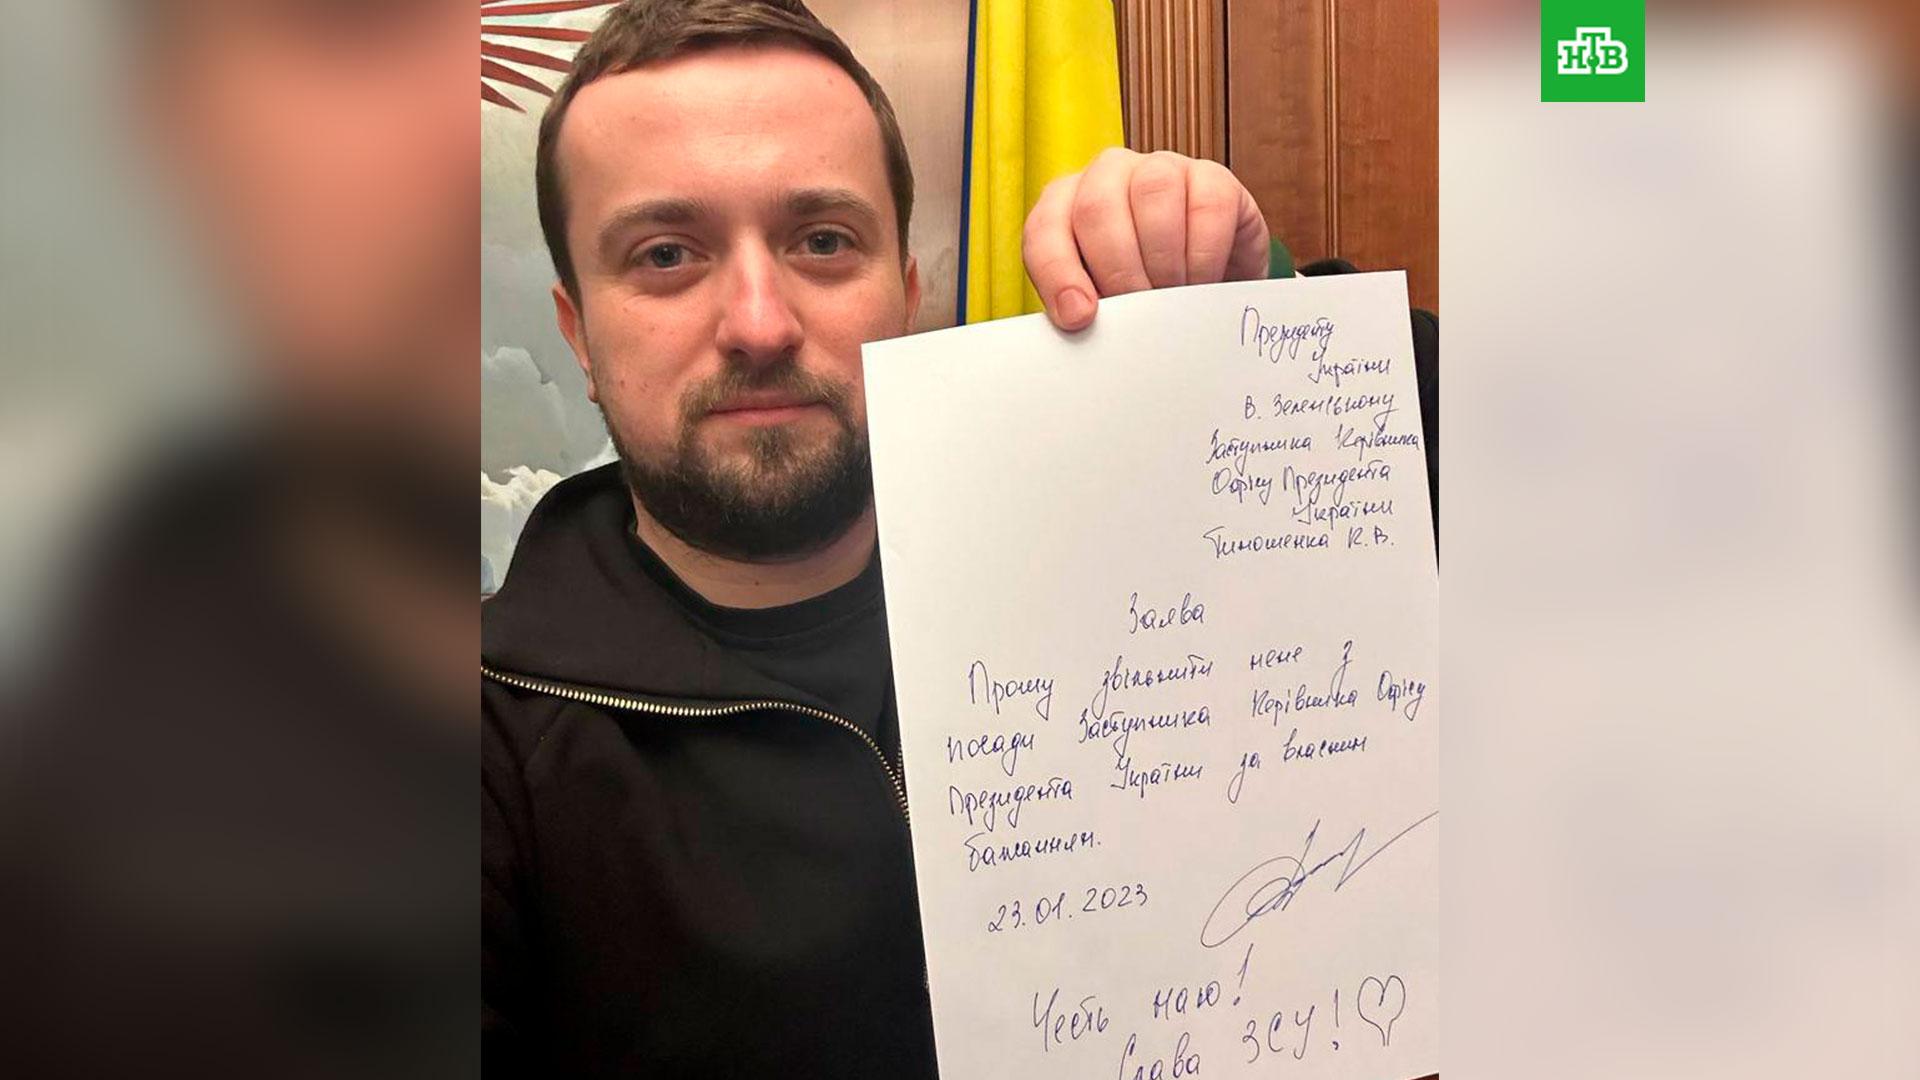 НТВ
Президенту
України
В. Зеленському
Заступника Керівника
Офісу Президента
України
Тимошенка К.В.
Заява
Прошу звільнити мене з
посади Заступника Керівника Офісу
Президента України за власним
бажанням.
23.01.2023
Честь маю!
Слава ЗСУ!